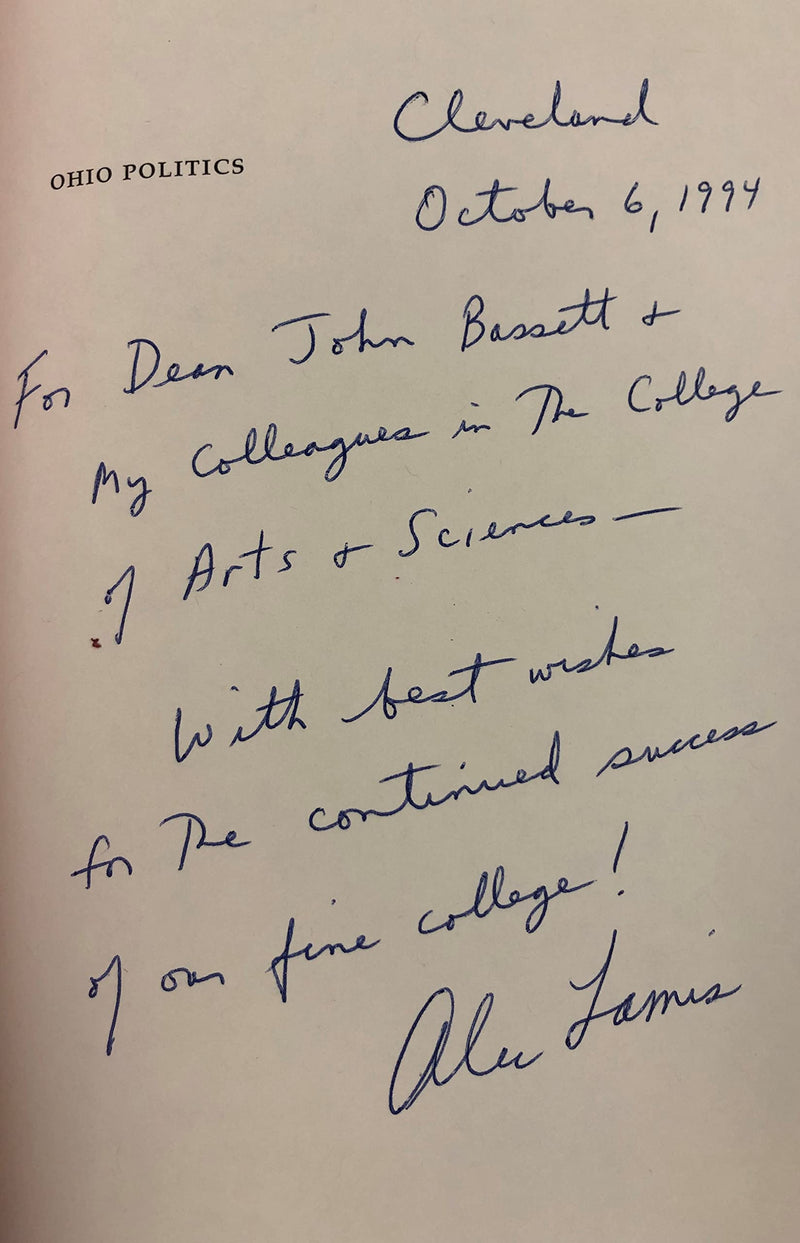 Cleveland
OHIO POLITICS
October 6, 1994
For Dean John Bassett &
My Colleagues in The College
of Arts & Sciences —
With best wishes
for The continued success
of our fine college!
Alec Lamis